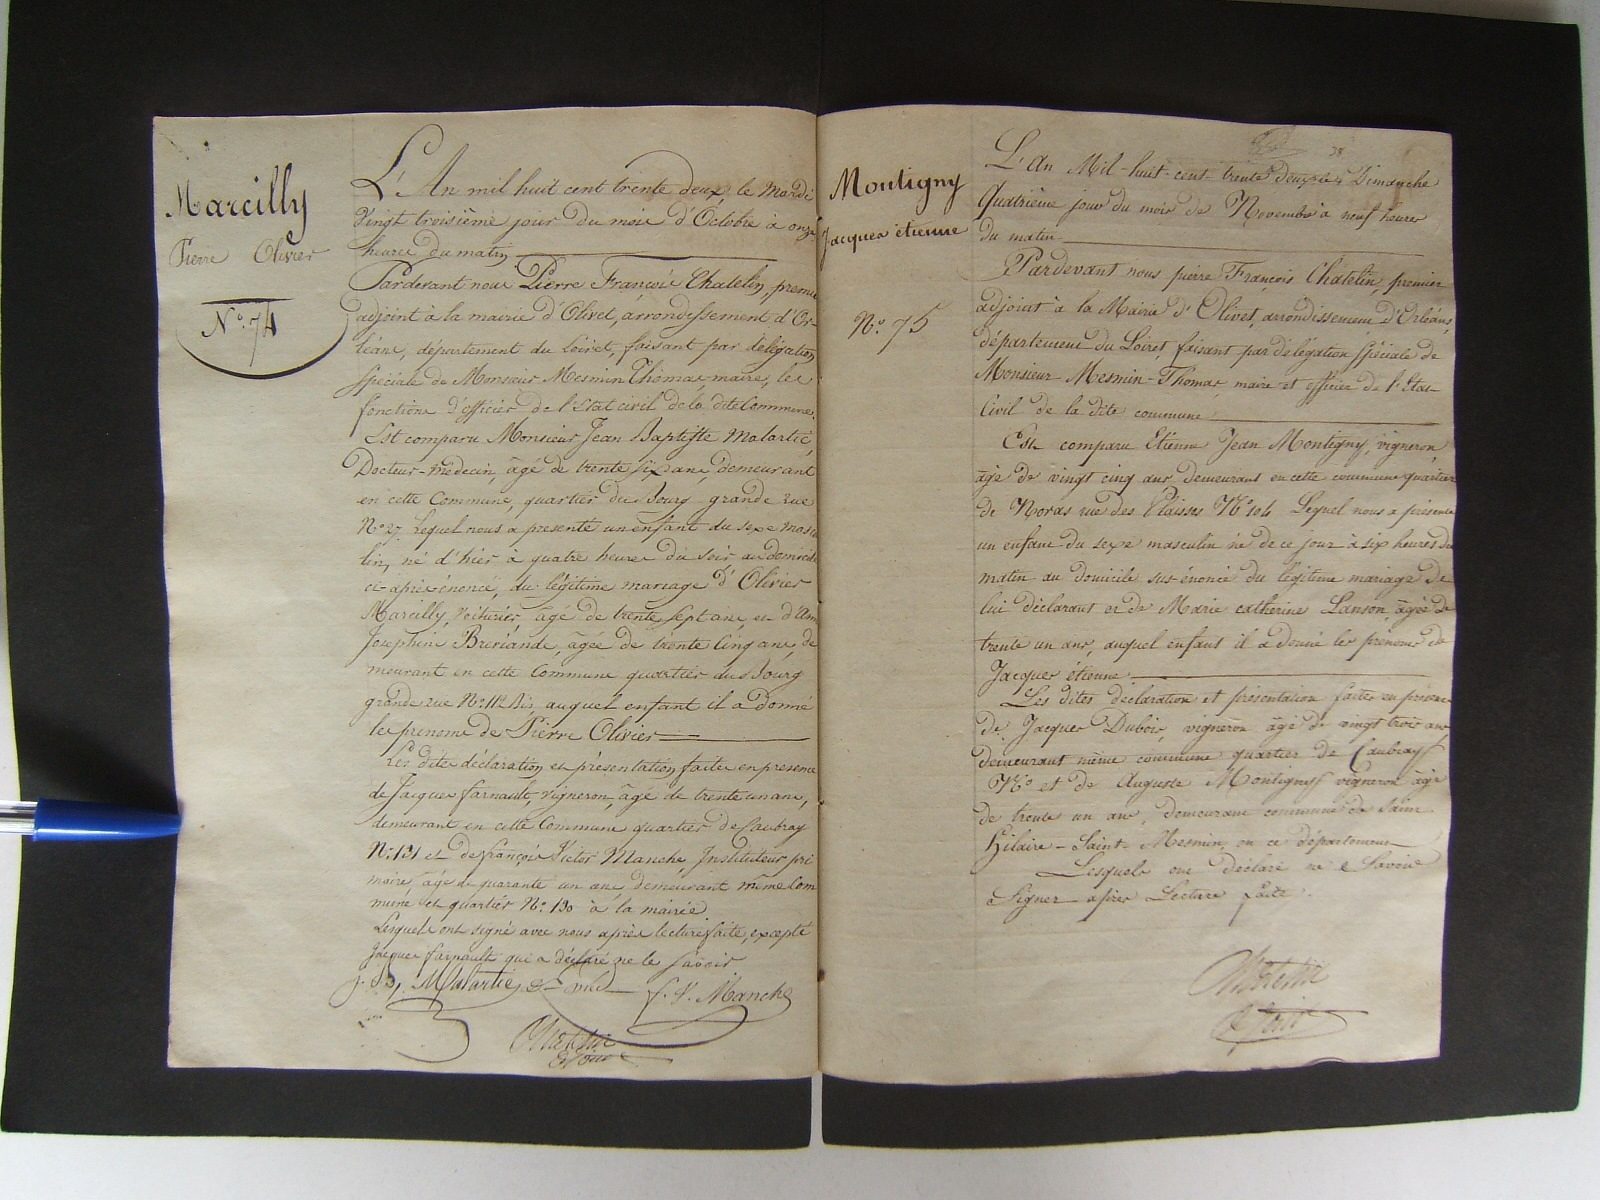 Marcilly
Pierre Olivier
N.° 74
L'An mil huit cent trente deux le Mardi
Vingt troisième jour du mois d'Octobre à onze
heures du matin
Pardevant nous Pierre François Chatelin, premier
adjoint à la mairie d'Olivet, arrondissement d'Or-
léans, département du Loiret, faisant par délégation
spéciale de Monsieur Mesmin Thomas, maire, les
fonctions d'officier de l'état civil de la dite Commune.
Est comparu Monsieur Jean Baptiste Malartic,
Docteur-médecin, âgé de trente six ans, demeurant
en cette Commune, quartier du Bourg grande rue
N° 27. Lequel nous a présenté un enfant du sexe mascu
lin, né d'hier à quatre heures du soir au domicile
ci-après énoncé, du légitime mariage d'Olivier
Marcilly, voiturier, âgé de trente sept ans, et d'
Joséphine Briande, âgée de trente cinq ans, de
meurant en cette Commune quartier du Bourg
grande rue N° 112 bis, auquel enfant il a donné
les prénoms de Pierre Olivier
Les dites déclaration et présentation faites en présence
de Jacques farnault, vigneron, âgé de trente un ans,
demeurant en cette Commune quartier de Caubray
N.° 131 et de françois Victor Manche, Instituteur pri
maire, âgé de quarante un ans, demeurant même Com
mune et quartier N.° 130 à la mairie.
Lesquels ont signé avec nous après lecture faite, excepté
Jacques farnault qui a déclaré ne le savoir
j. B. Malartic f. V. Manche
Chatelin
adjoint
Montigny
Jacques étienne
N.° 75
38
L'An Mil-huit-cent-trente Deux, le Dimanche
Quatrième jour du mois de Novembre à neuf heures
du matin
Pardevant nous pierre François Chatelin, premier
adjoint à la Mairie d'Olivet, arrondissement D'Orléans,
département du Loiret, faisant par délégation spéciale de
Monsieur Mesmin-Thomas, maire et officier de l'État
Civil de la dite commune
Est comparu Etienne Jean Montigny, vigneron,
âgé de vingt cinq ans demeurant en cette commune quartier
de Noras rue des Plaisses N° 104 Lequel nous a présenté
un enfant du sexe masculin né de ce jour à six heures du
matin au domicile sus-énoncé du légitime mariage de
lui déclarant et de Marie catherine Lanson, âgée de
trente un ans, auquel enfant il a donné les prénoms de
Jacques étienne
Les dites déclaration et présentation faites en présence
de Jacques Dubois vigneron âgé de vingt trois ans
demeurant même commune quartier de Caubray
N° et de Auguste Montigny vigneron âgé
de trente un ans, demeurant commune de Saint
Hilaire-Saint-Mesmin, en ce département
Lesquels ont déclaré ne le Savoir
à Signer après Lecture faite.
Chatelin
adjoint